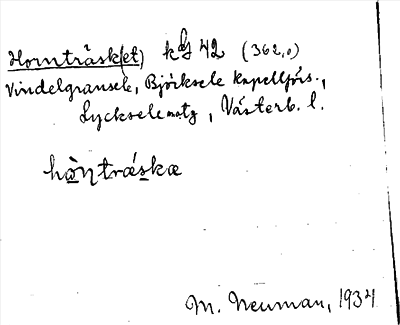 Hornträsk(et) k 42 (362,0)
Vindelgransele, Björksele kapellförs.,
Lycksele , Västerb. l.
hòn̥træ´ska
M. Neuman, 1934